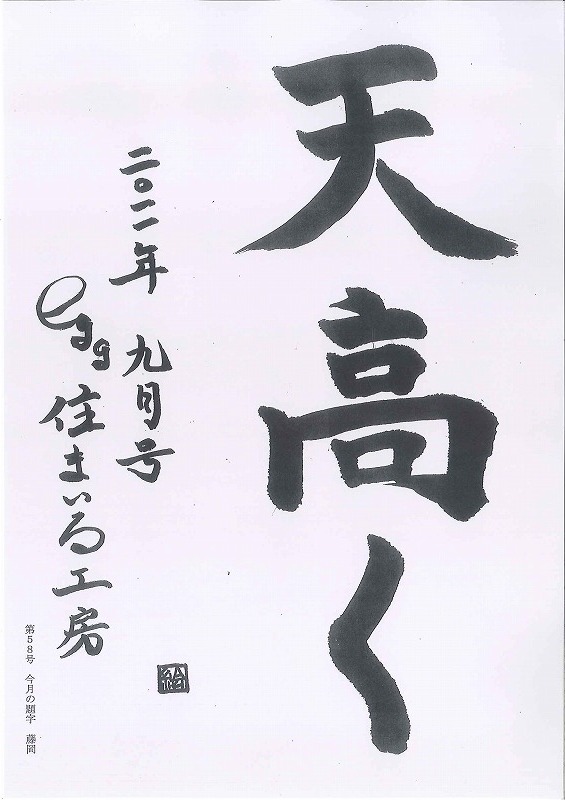 天高く
二〇一一年 九月号
egg 住まいる工房
絵
第58号 今月の題字 藤岡